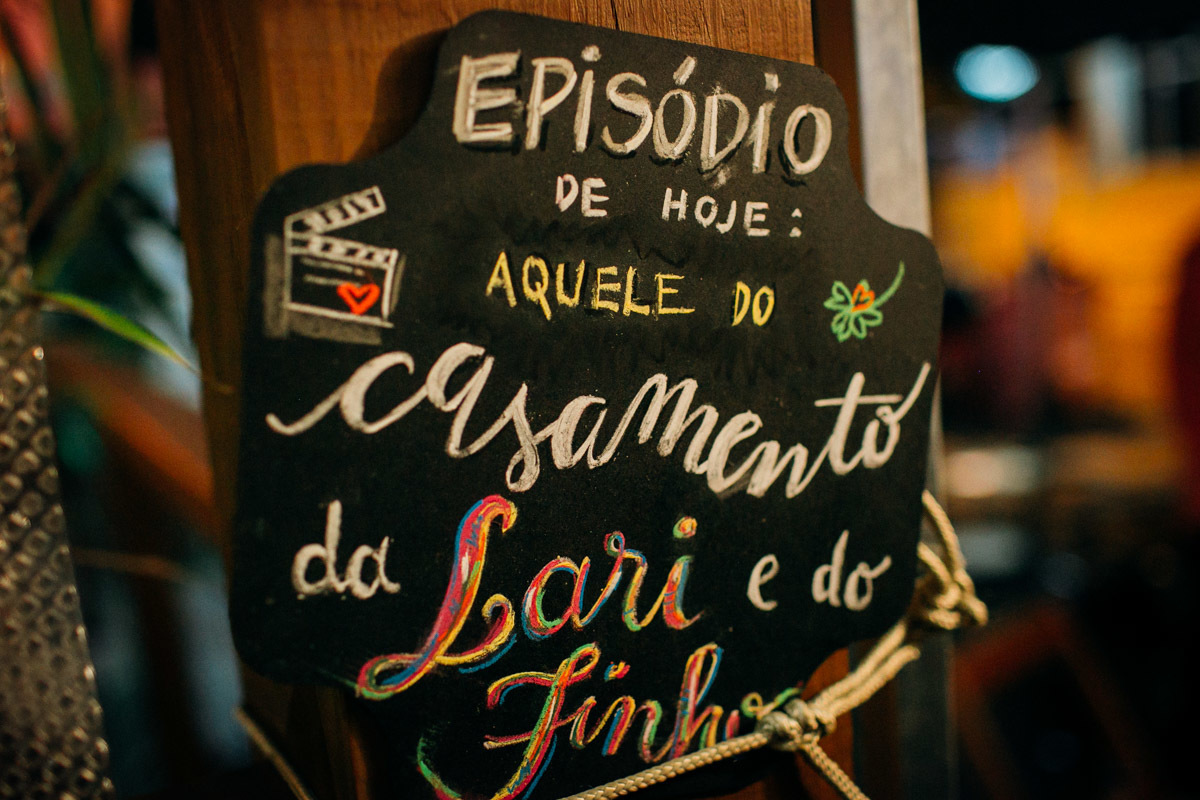 EPISÓDIO
DE HOJE:
AQUELE DO
casamento
da Lari e do
Finho